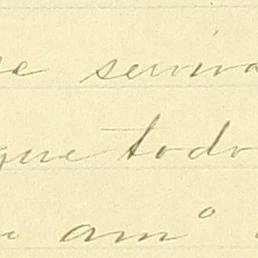 se servira
que todo
am°